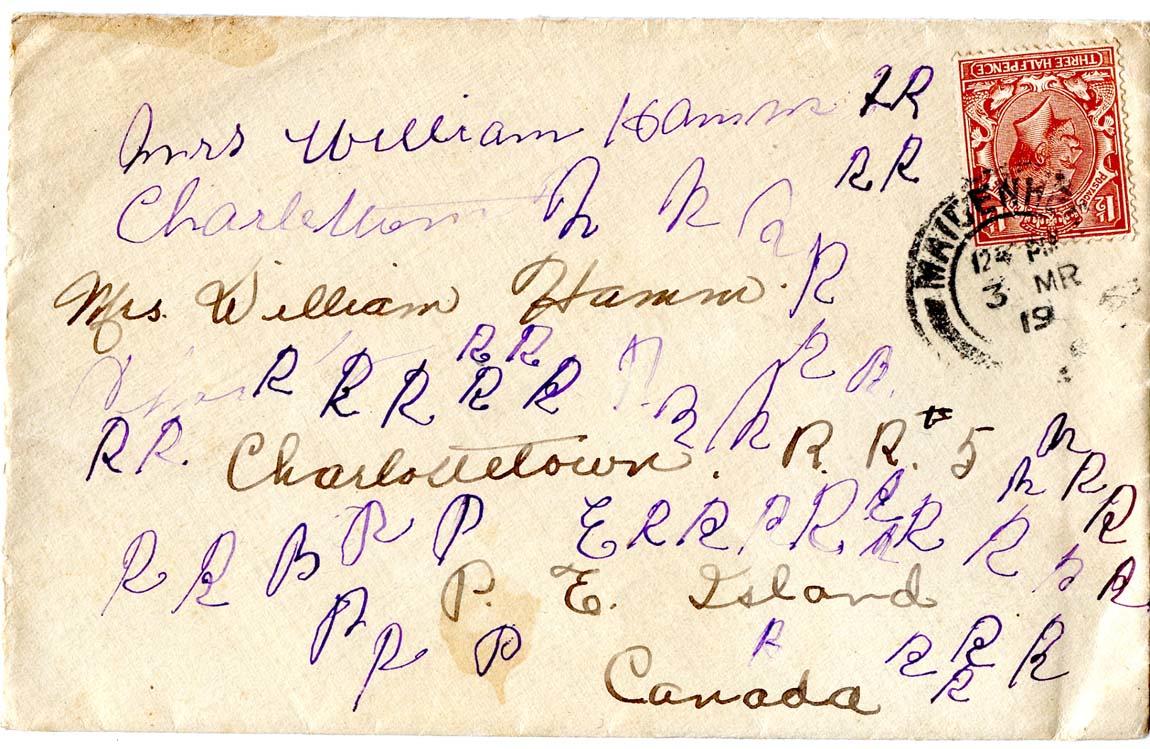 Mrs William Hamm RR
RR
Charlottown R R R
R
Mrs. William Hamm.
RR R B.
R R R R R
RR. R R
Charlottetown. R. R. # 5
R R
R R B R P E R R R R R R R R R
P. E. Island
R R
P R P R R R R
R
Canada
(THREE HALFPENCE)
POSTAGE
1½
MAIDENH
12 PM
3 MR
19